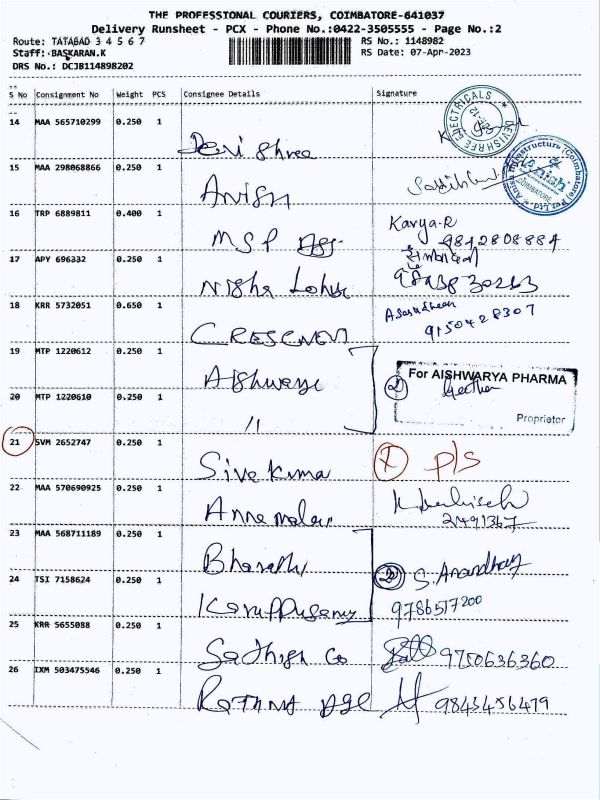 THE PROFESSIONAL COURIERS, COIMBATORE-641037
Delivery Runsheet - PCX - Phone No.:0422-3505555 - Page No.:2
Route: TATABAD 3 4 5 6 7
RS No.: 1148982
Staff: BASKARAN.K
RS Date: 07-Apr-2023
DRS No.: DCJB114898202
S No Consignment No Weight PCS Consignee Details Signature
14 MAA 565710299 0.250 1 Devi Shree
DEVISHREE ELECTRICALS
15 MAA 298068866 0.250 1 Anish
Anish Infrastructure (Coimbatore) Pvt Ltd
COIMBATORE
16 TRP 6889811 0.400 1 MSP Karya.R
9842808884
17 APY 696332 0.250 1 Nisha
18 KRR 5732051 0.650 1 CRESCENT
9150428307
19 MTP 1220612 0.250 1 Aishwarya
For AISHWARYA PHARMA
2 Geetha
Proprietor
20 MTP 1220610 0.250 1 "
21 SVM 2652747 0.250 1 Siva Kumar 1 P/S
22 MAA 570690925 0.250 1 Annamalai
2491367
23 MAA 568711189 0.250 1 Bharathi
2 S. Anandhay
24 TSI 7158624 0.250 1 Karuppusamy 9786517200
25 KRR 5655088 0.250 1 Sathish Co 9750636360
26 IXM 503475546 0.250 1 RATHNA AGE 9843456479